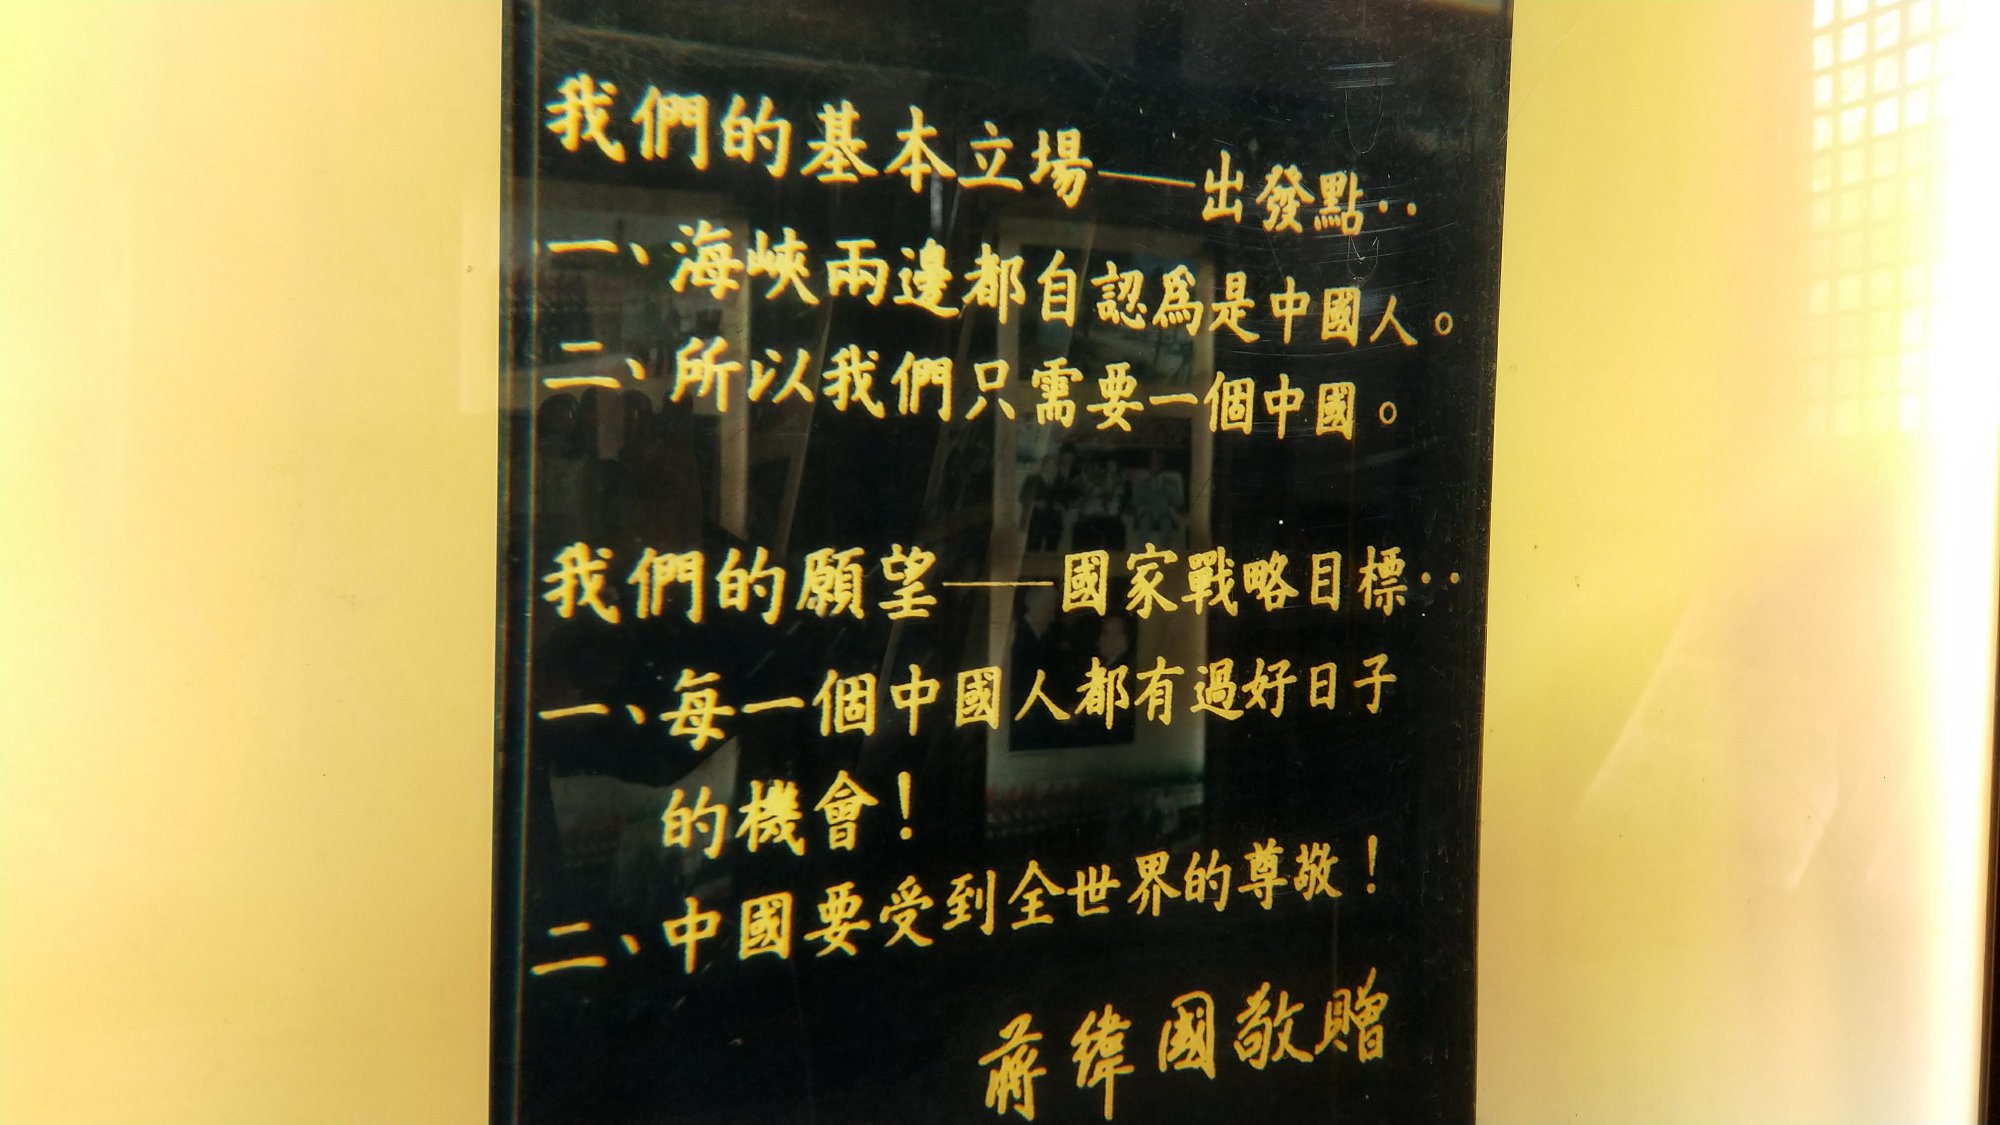 我們的基本立場——出發點：
一、海峽兩邊都自認爲是中國人。
二、所以我們只需要一個中國。
我們的願望——國家戰略目標：
一、每一個中國人都有過好日子
的機會！
二、中國要受到全世界的尊敬！
蔣緯國敬贈